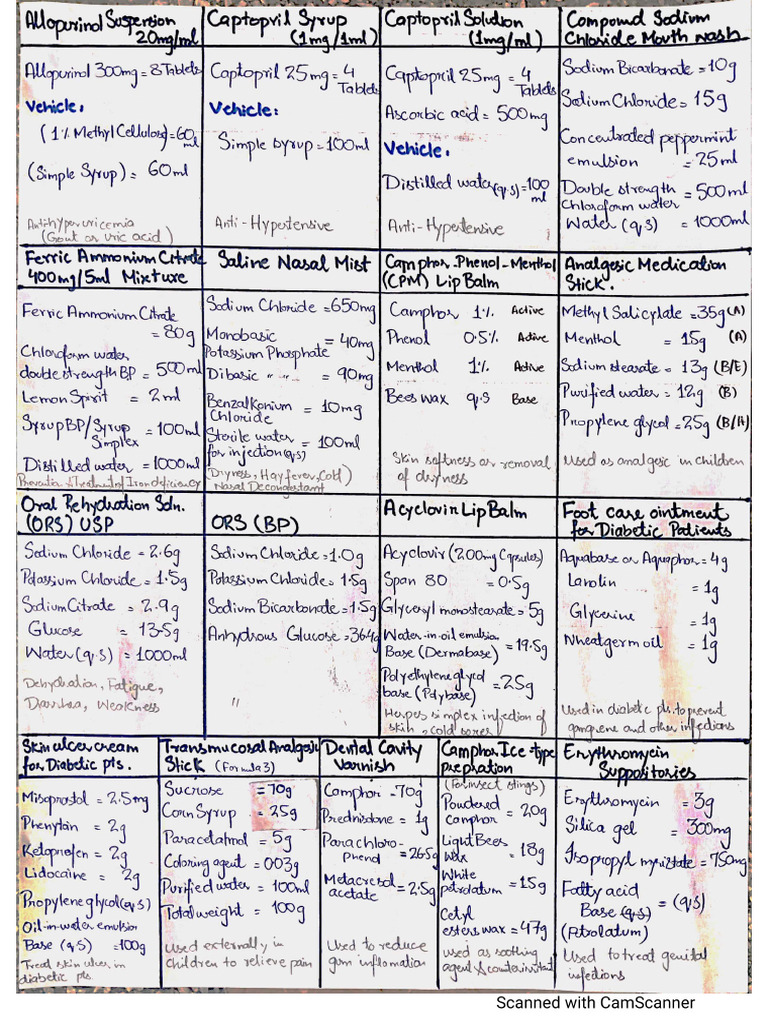 Allopurinol Suspension
20mg/ml
Allopurinol 300mg = 8 Tablets
Vehicle:
(1% Methyl Cellulose) = 60ml
(Simple Syrup) = 60ml
Antihyperuricemia
(Gout or uric acid)
Captopril Syrup
(1mg/1ml)
Captopril 25mg = 4
Tablets
Vehicle:
Simple Syrup = 100ml
Anti-Hypertensive
Captopril Solution
(1mg/ml)
Captopril 25mg = 4
Tablets
Ascorbic acid = 500mg
Vehicle:
Distilled water (q.s) = 100
ml
Anti-Hypertensive
Compound Sodium
Chloride Mouth wash
Sodium Bicarbonate = 10g
Sodium Chloride = 15g
Concentrated peppermint
emulsion = 25ml
Double strength = 500ml
Chloroform water
Water (q.s) = 1000ml
Ferric Ammonium Citrate
400mg/5ml Mixture
Ferric Ammonium Citrate
= 80g
Chloroform water
double strength BP = 500ml
Lemon Spirit = 2ml
Syrup BP/Syrup = 100ml
Simplex
Distilled water = 1000ml
Prevention & Treatment of Iron deficiency
Saline Nasal Mist
Sodium Chloride = 650mg
Monobasic = 40mg
Potassium Phosphate
Dibasic " " = 90mg
Benzalkonium = 10mg
Chloride
Sterile water = 100ml
for injection (q.s)
(Dryness, Hay fever, Cold)
Nasal Decongestant
Camphor-Phenol-Menthol
(CPM) Lip Balm
Camphor 1% Active
Phenol 0.5% Active
Menthol 1% Active
Bees wax q.s Base
Skin softness or removal
of dryness
Analgesic Medication
Stick.
Methyl Salicylate = 35g (A)
Menthol = 15g (A)
Sodium stearate = 13g (B/E)
Purified water = 12g (B)
Propylene glycol = 25g (B/H)
Used as analgesic in children
Oral Rehydration Soln.
(ORS) USP
Sodium Chloride = 2.6g
Potassium Chloride = 1.5g
Sodium Citrate = 2.9g
Glucose = 13.5g
Water (q.s) = 1000ml
Dehydration, Fatigue,
Diarrhea, Weakness
ORS (BP)
Sodium Chloride = 1.0g
Potassium Chloride = 1.5g
Sodium Bicarbonate = 1.5g
Anhydrous Glucose = 36.4g
"
Acyclovir Lip Balm
Acyclovir (200mg Capsules)
Span 80 = 0.5g
Glyceryl monostearate = 5g
Water-in-oil emulsion
Base (Dermabase) = 19.5g
Polyethylene glycol
base (Polybase) = 25g
Herpes simplex infection of
skin, cold sores
Foot care ointment
for Diabetic Patients
Aquabase or Aquaphor = 4g
Lanolin = 1g
Glycerine = 1g
Wheatgerm oil = 1g
Used in diabetic pts. to prevent
gangrene and other infections
Skin ulcer cream
for Diabetic pts.
Misoprostol = 2.5mg
Phenytoin = 2g
Ketoprofen = 2g
Lidocaine = 2g
Propylene glycol (q.s)
Oil-in-water emulsion
Base (q.s) = 100g
Treat skin ulcer in
diabetic pts.
Transmucosal Analgesic
Stick (Formula 3)
Sucrose = 70g
Corn Syrup = 25g
Paracetamol = 5g
Coloring agent = 0.03g
Purified water = 100ml
Total weight = 100g
Used externally in
children to relieve pain
Dental Cavity
Varnish
Camphor = 70g
Prednistone = 1g
Parachloro- = 26.5g
Phenol
Metacresol = 2.5g
acetate
Used to reduce
gum inflomation
Camphor Ice-type
prepration
(For insect stings)
Powdered = 20g
camphor
Light Bees = 18g
wax
White = 15g
petrolatum
Cetyl
esters wax = 47g
used as soothing
agent & counterirritant
Erythromycin
Suppositories
Erythromycin = 3g
Silica gel = 300mg
Isopropyl myristate = 750mg
Fatty acid
Base (q.s) = (q.s)
(Petrolatum)
Used to treat genital
infections
Scanned with CamScanner